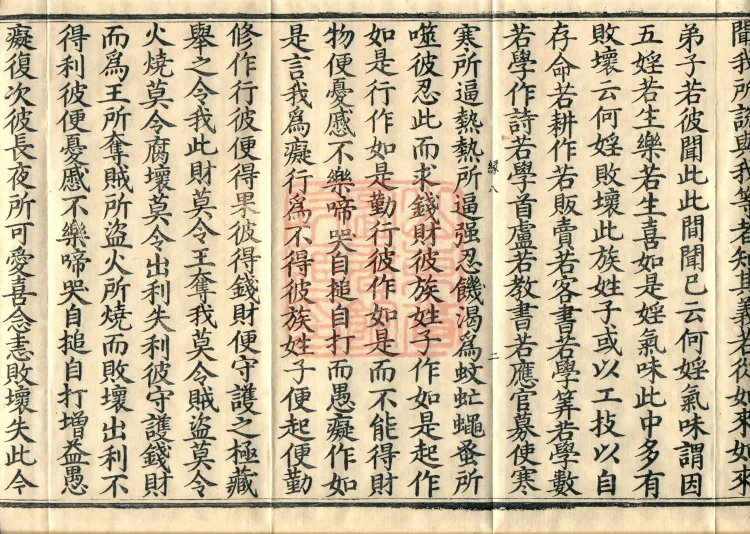 聞我所說與我等若知其義若從如來如來
弟子若彼聞此此間聞已云何婬氣味謂因
五婬若生樂若生喜如是婬氣味此中多有
敗壞云何婬敗壞此族姓子或以工技以自
存命若耕作若販賣若客書若學筭若學數
若學作詩若學首盧若教書若應官募使寒
寒所逼熱熱所逼强忍飢渴爲蚊虻蠅蚤所
噬彼忍此而求錢財彼族姓子作如是起作
如是行作如是勤行彼作如是而不能得財
物便憂慼不樂啼哭自搥自打而愚癡作如
是言我爲癡行爲不得彼族姓子便起便勤
修作行彼便得果彼得錢財便守護之極藏
舉之令我此財莫令王奪我莫令賊盜莫令
火燒莫令腐壞莫令出利失利彼守護錢財
而爲王所奪賊所盜火所燒而敗壞出利不
得利彼便憂慼不樂啼哭自搥自打增益愚
癡復次彼長夜所可愛喜念恚敗壞失此今
二